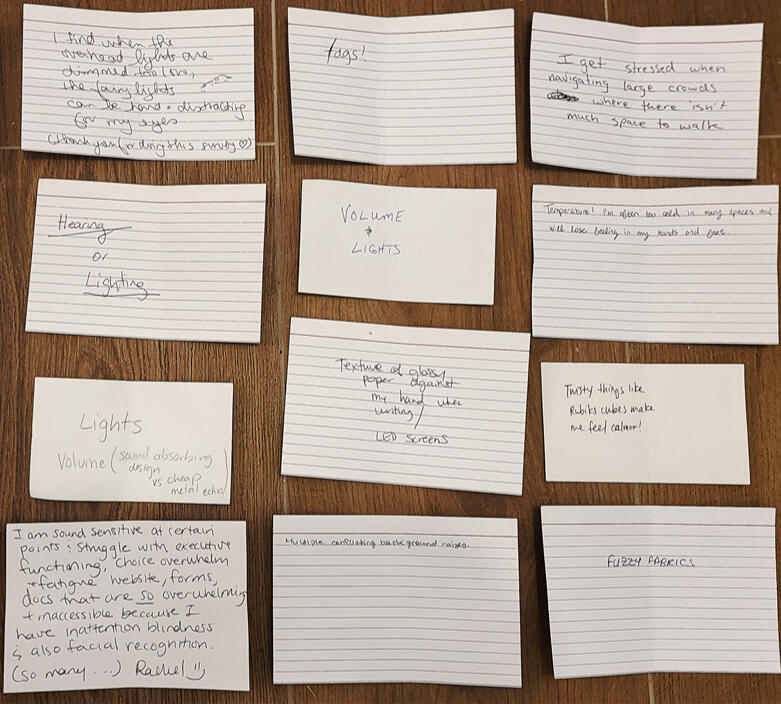 I find when the
overhead lights are
dimmed too low,
the fairy lights
can be hard + distracting
for my eyes
(thank you for doing this survey ♡)
tags!
I get stressed when
navigating large crowds
where there isn't
much space to walk
Hearing
or
Lighting
VOLUME
+
LIGHTS
Temperature! I'm often too cold in many spaces and
will lose feeling in my hands and feet.
Lights
Volume (sound absorbing
design
vs cheap
metal echos)
Texture of glossy
paper against
my hand when
writing/
LED screens
Twisty things like
Rubiks cubes make
me feel calmer!
I am sound sensitive at certain
points & struggle with executive
functioning, choice overwhelm
+ fatigue website, forms,
docs that are so overwhelming
+ inaccessible because I
have inattention blindness
& also facial recognition.
(so many...) Rachel
Multiple conflicting background noises.
FUZZY FABRICS